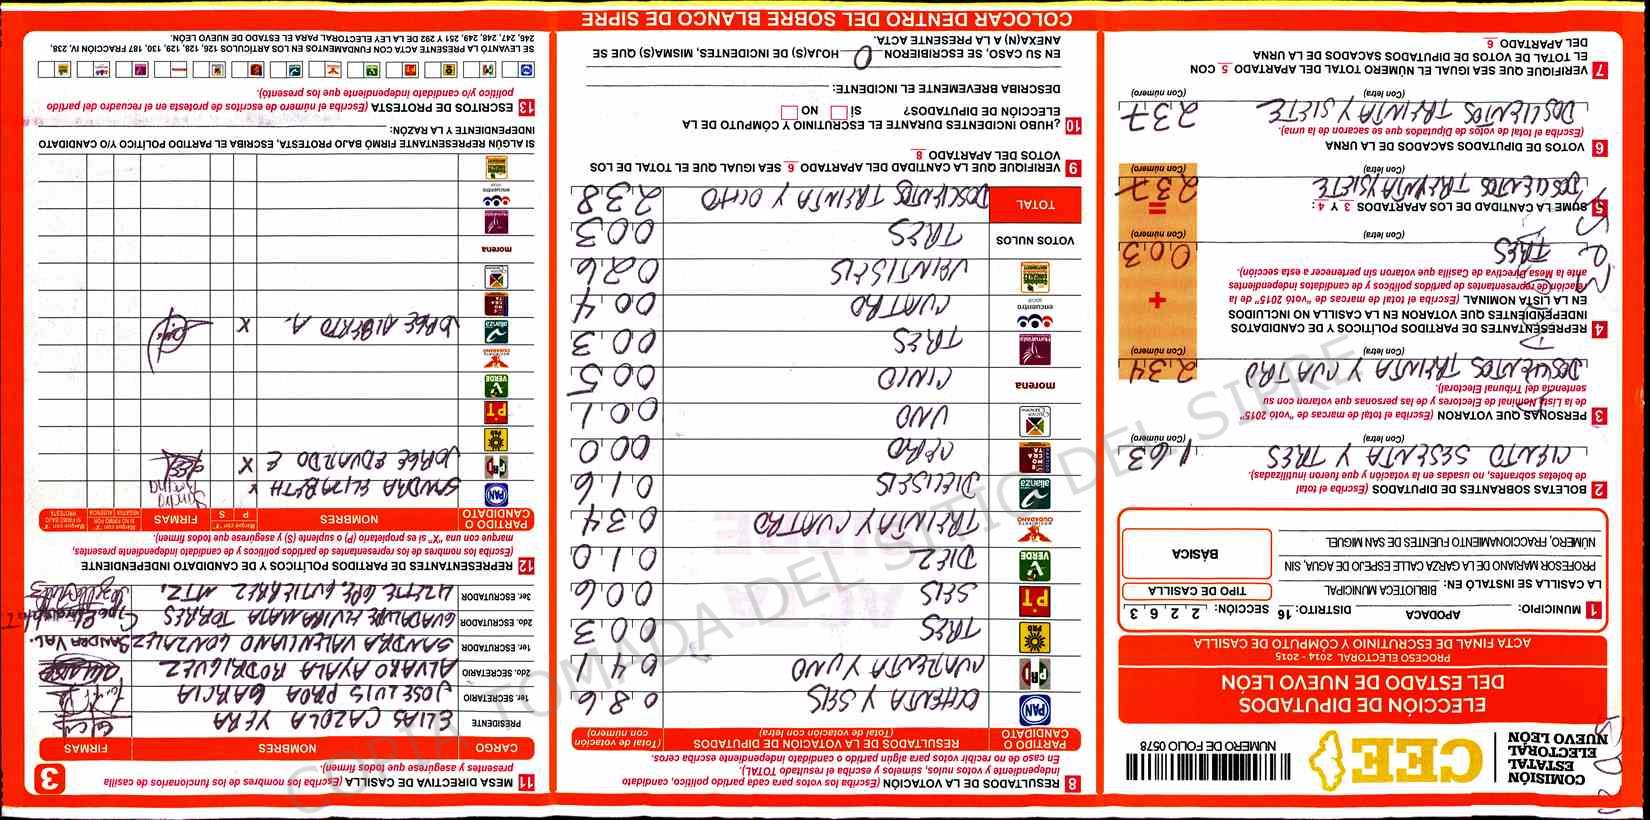 COMISIÓN
ESTATAL
ELECTORAL
NUEVO LEÓN
CEE
NÚMERO DE FOLIO 0578
ELECCIÓN DE DIPUTADOS
DEL ESTADO DE NUEVO LEÓN
PROCESO ELECTORAL 2014 - 2015
ACTA FINAL DE ESCRUTINIO Y CÓMPUTO DE CASILLA
1 MUNICIPIO: APODACA DISTRITO: 16 SECCIÓN: 2 2 6 3
LA CASILLA SE INSTALÓ EN: BIBLIOTECA MUNICIPAL
PROFESOR MARIANO DE LA GARZA CALLE ESPEJO DE AGUA, SIN
NÚMERO, FRACCIONAMIENTO FUENTES DE SAN MIGUEL
TIPO DE CASILLA
BÁSICA
2 BOLETAS SOBRANTES DE DIPUTADOS (Escriba el total
de boletas sobrantes, no usadas en la votación y que fueron inutilizadas).
CIENTO SESENTA Y TRES 163
(Con letra) (Con número)
3 PERSONAS QUE VOTARON (Escriba el total de marcas de "votó 2015"
de la Lista Nominal de Electores y de las personas que votaron con su
sentencia del Tribunal Electoral).
DOSCIENTOS TREINTA Y CUATRO 234
(Con letra) (Con número)
4 REPRESENTANTES DE PARTIDOS POLÍTICOS Y DE CANDIDATOS
INDEPENDIENTES QUE VOTARON EN LA CASILLA NO INCLUIDOS
EN LA LISTA NOMINAL (Escriba el total de marcas de "votó 2015" de la
relación de representantes de partidos políticos y de candidatos independientes
ante la Mesa Directiva de Casilla que votaron sin pertenecer a esta sección).
+
TRES 003
(Con letra) (Con número)
5 SUME LA CANTIDAD DE LOS APARTADOS 3 Y 4:
=
DOSCIENTOS TREINTA Y SIETE 237
(Con letra) (Con número)
6 VOTOS DE DIPUTADOS SACADOS DE LA URNA
(Escriba el total de votos de Diputados que se sacaron de la urna).
DOSCIENTOS TREINTA Y SIETE 237
(Con letra) (Con número)
7 VERIFIQUE QUE SEA IGUAL EL NÚMERO TOTAL DEL APARTADO 5 CON
EL TOTAL DE VOTOS DE DIPUTADOS SACADOS DE LA URNA
DEL APARTADO 6
8 RESULTADOS DE LA VOTACIÓN (Escriba los votos para cada partido político, candidato
independiente y votos nulos, súmelos y escriba el resultado TOTAL).
En caso de no recibir votos para algún partido o candidato independiente escriba ceros.
PARTIDO O CANDIDATO RESULTADOS DE LA VOTACIÓN DE DIPUTADOS (Total de votación con letra) (Total de votación con número)
PAN OCHENTA Y SEIS 086
PRI CUARENTA Y UNO 041
PRD TRES 003
PT SEIS 006
VERDE DIEZ 010
MOVIMIENTO CIUDADANO TREINTA Y CUATRO 034
alianza DIECISEIS 016
CERO 000
UNO 001
morena CINCO 005
Humanista TRES 003
encuentro social CUATRO 004
VEINTISEIS 026
VOTOS NULOS TRES 003
TOTAL DOSCIENTOS TREINTA Y OCHO 238
9 VERIFIQUE QUE LA CANTIDAD DEL APARTADO 6 SEA IGUAL QUE EL TOTAL DE LOS
VOTOS DEL APARTADO 8
10 ¿HUBO INCIDENTES DURANTE EL ESCRUTINIO Y CÓMPUTO DE LA
ELECCIÓN DE DIPUTADOS? SI NO
DESCRIBA BREVEMENTE EL INCIDENTE:
EN SU CASO, SE ESCRIBIERON 0 HOJA(S) DE INCIDENTES, MISMA(S) QUE SE
ANEXA(N) A LA PRESENTE ACTA.
COLOCAR DENTRO DEL SOBRE BLANCO DE SIPRE
3
11 MESA DIRECTIVA DE CASILLA (Escriba los nombres de los funcionarios de casilla
presentes y asegúrese que todos firmen).
CARGO NOMBRES FIRMAS
PRESIDENTE ELIAS CAZOLA VERA
1er. SECRETARIO JOSE LUIS PROA GARCIA
2do. SECRETARIO ALVARO AYALA RODRIGUEZ
1er. ESCRUTADOR SANDRA VALENCIANO GONZALEZ SANDRA VAL
2do. ESCRUTADOR GUADALUPE ELVIRA MATA TORRES
3er. ESCRUTADOR LIZETTE GPE. GUTIERREZ MTZ.
12 REPRESENTANTES DE PARTIDOS POLÍTICOS Y DE CANDIDATO INDEPENDIENTE
(Escriba los nombres de los representantes de partidos políticos y de candidato independiente presentes,
marque con una "X" si es propietario (P) o suplente (S) y asegúrese que todos firmen).
PARTIDO O CANDIDATO NOMBRES P S FIRMAS
PAN SANDRA ELIZABETH X
PRI JORGE EDUARDO E X
PRD
PT
VERDE
MOVIMIENTO CIUDADANO
alianza JORGE ALBERTO A. X
morena
encuentro
SI ALGÚN REPRESENTANTE FIRMÓ BAJO PROTESTA, ESCRIBA EL PARTIDO POLÍTICO Y/O CANDIDATO
INDEPENDIENTE Y LA RAZÓN:
13 ESCRITOS DE PROTESTA (Escriba el número de escritos de protesta en el recuadro del partido
político y/o candidato independiente que los presentó).
SE LEVANTÓ LA PRESENTE ACTA CON FUNDAMENTOS EN LOS ARTÍCULOS 126, 128, 129, 130, 187 FRACCIÓN IV, 238,
246, 247, 248, 249, 251 Y 292 DE LA LEY ELECTORAL PARA EL ESTADO DE NUEVO LEÓN.
COPIA TOMADA DEL SITIO DEL SIPRE